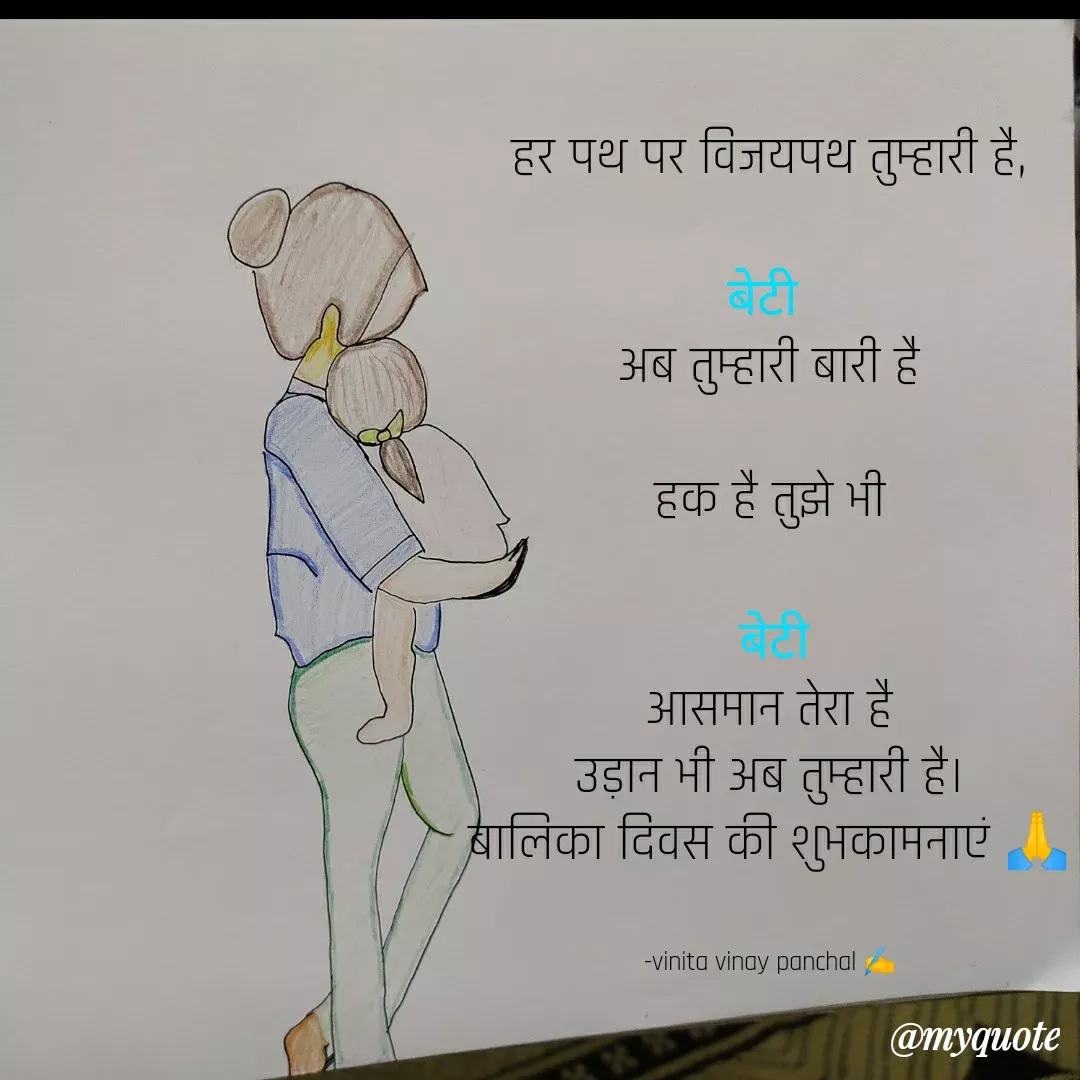 हर पथ पर विजयपथ तुम्हारी है,
बेटी
अब तुम्हारी बारी है
हक है तुझे भी
बेटी
आसमान तेरा है
उड़ान भी अब तुम्हारी है।
बालिका दिवस की शुभकामनाएं 🙏
-vinita vinay panchal ✍️
@myquote